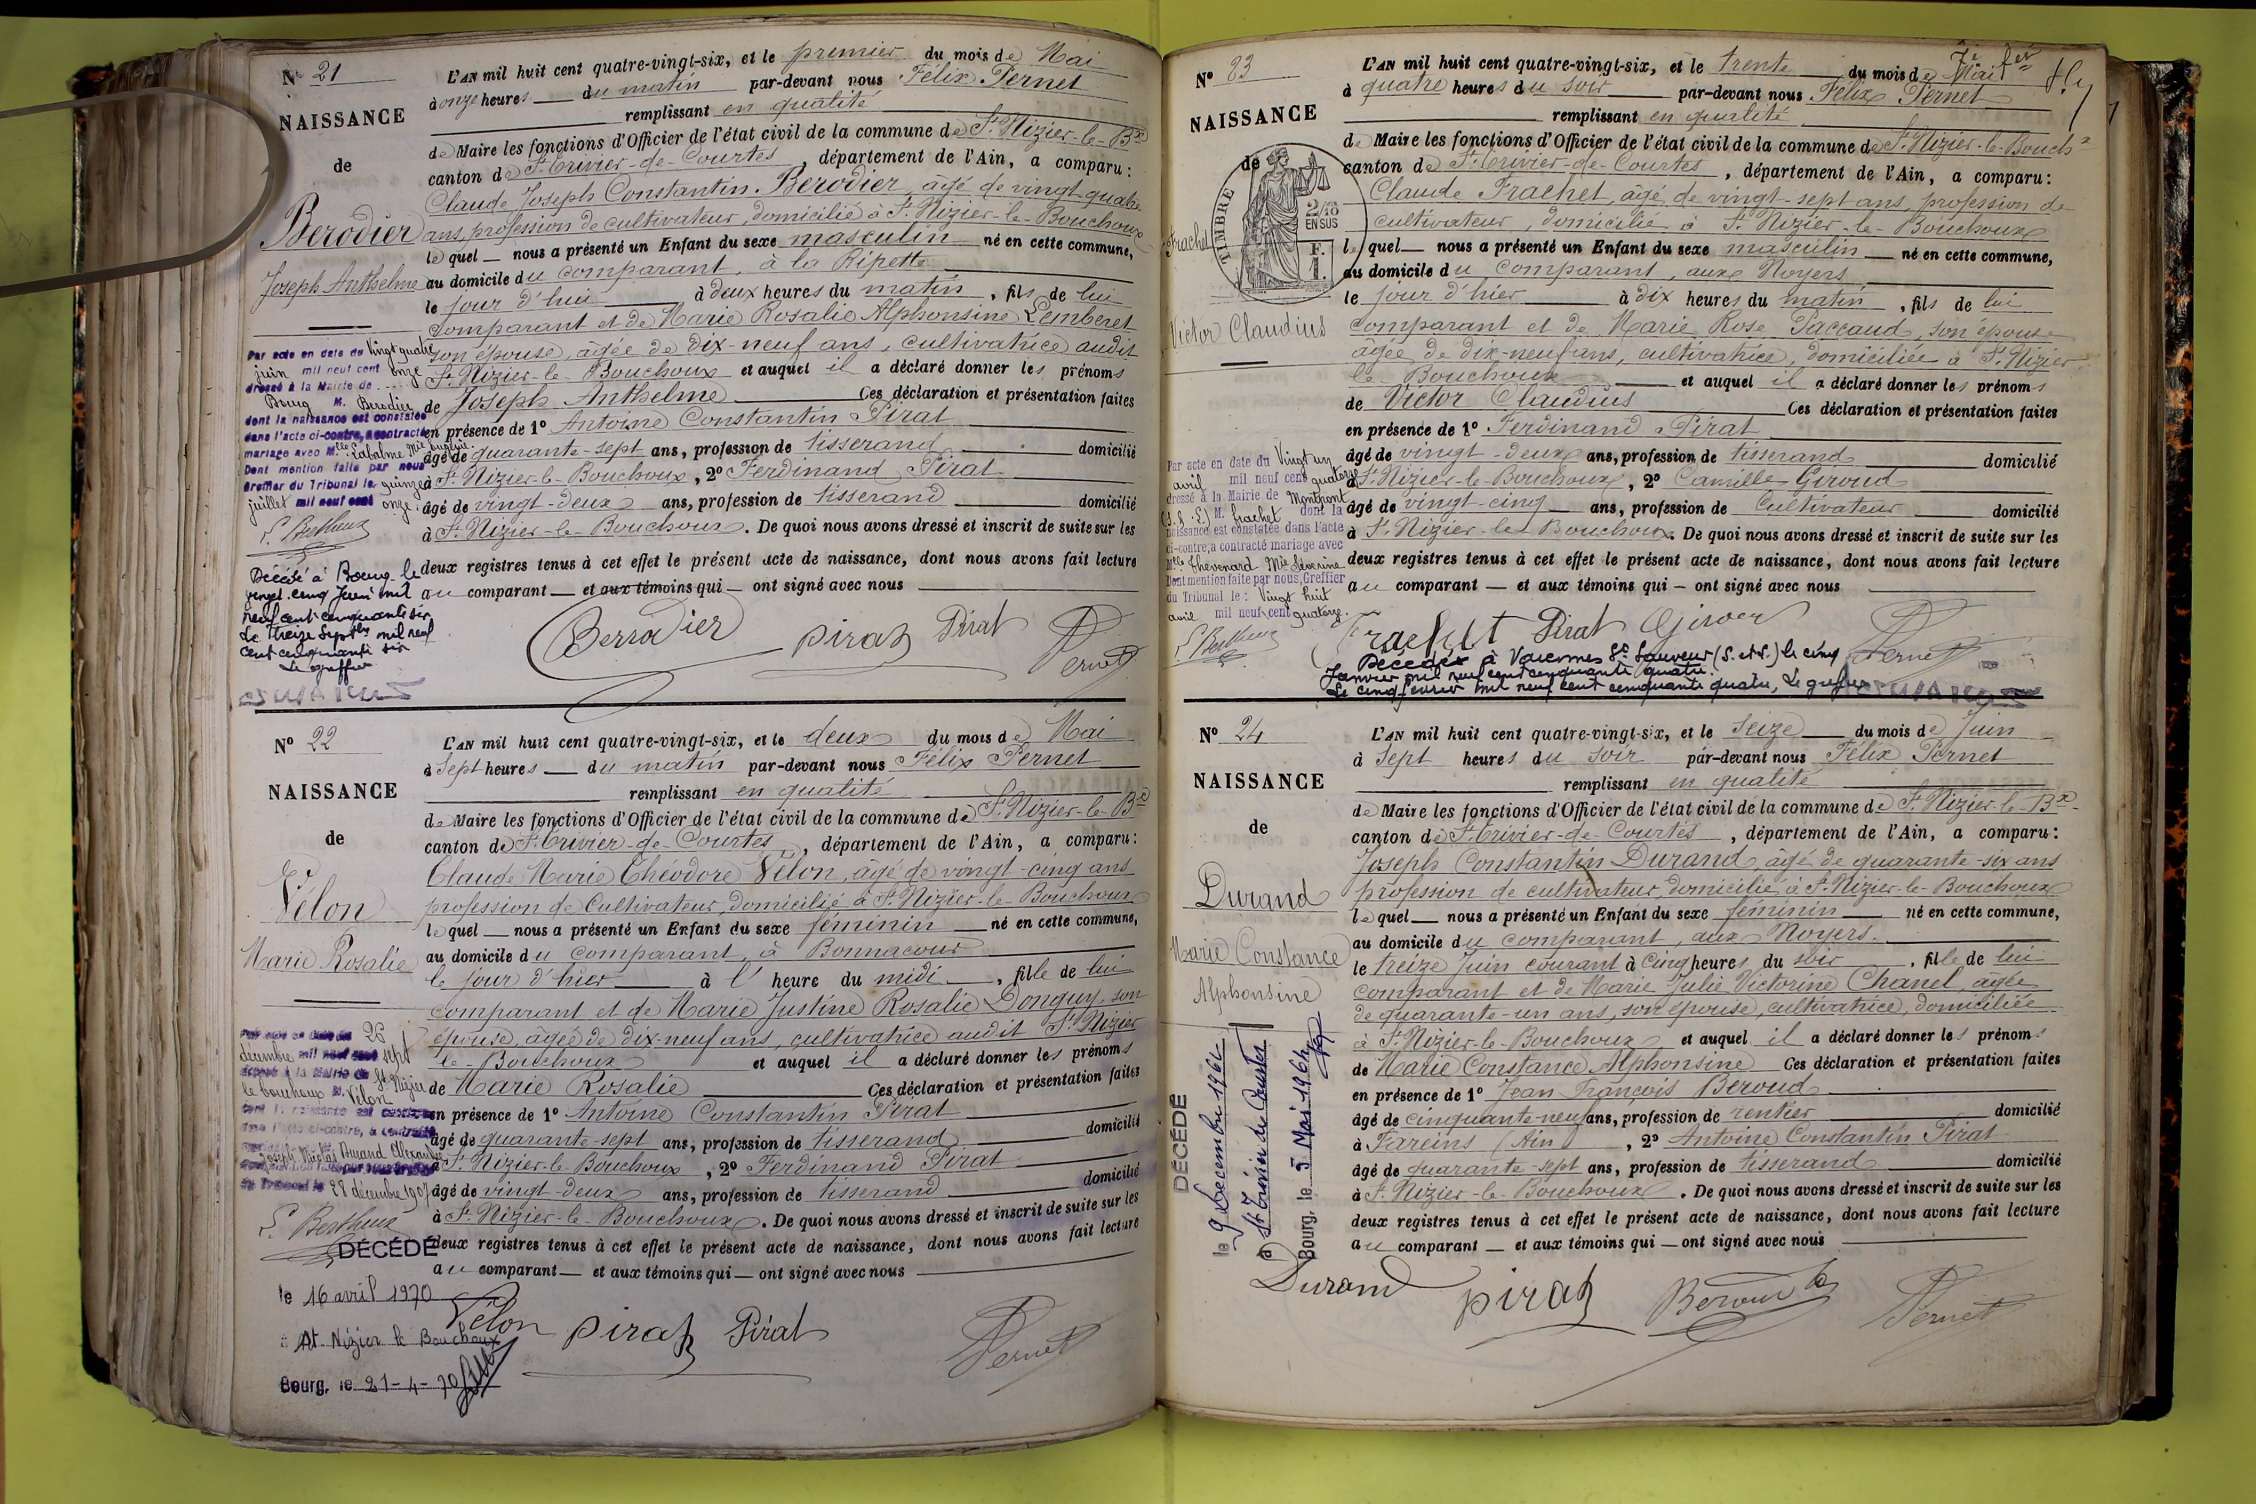 N° 21
NAISSANCE
de
Berodier
Joseph Anthelme
L'AN mil huit cent quatre-vingt-six, et le premier du mois de Mai
à onze heures du matin par-devant nous Félix Pernet
remplissant en qualité
de Maire les fonctions d'Officier de l'état civil de la commune de St Nizier-le-Bx
canton de St Trivier-de-Courtes, département de l'Ain, a comparu:
Claude Joseph Constantin Berodier, âgé de vingt-quatre
ans, profession de cultivateur, domicilié à St Nizier-le-Bouchoux
lequel nous a présenté un Enfant du sexe masculin né en cette commune,
au domicile du comparant, à la Ripette
le jour d'hui à deux heures du matin, fils de lui
comparant et de Marie Rosalie Alphonsine Lemberet
son épouse, âgée de dix-neuf ans, cultivatrice audit
St Nizier-le-Bouchoux et auquel il a déclaré donner les prénoms
de Joseph Anthelme Ces déclaration et présentation faites
en présence de 1° Antoine Constantin Pirat
âgé de quarante-sept ans, profession de tisserand domicilié
à St Nizier-le-Bouchoux, 2° Ferdinand Pirat
âgé de vingt-deux ans, profession de tisserand domicilié
à St Nizier-le-Bouchoux. De quoi nous avons dressé et inscrit de suite sur les
deux registres tenus à cet effet le présent acte de naissance, dont nous avons fait lecture
au comparant et aux témoins qui ont signé avec nous
Berrodier pirat Pirat Pernet
Par acte en date du vingt quatre
juin mil neuf cent onze
dressé à la Mairie de
Bourg M. Berodier
dont la naissance est constatée
dans l'acte ci-contre, a contracté
mariage avec Mlle Labalme Mie Eugénie.
Dont mention faite par nous
Greffier du Tribunal le quinze
juillet mil neuf cent onze.
L. Bertheux
Décédé à Bourg le
vingt cinq juin mil
neuf cent cinquante six
Le treize Septbre mil neuf
cent cinquante six
Le greffier
N° 22
NAISSANCE
de
Vélon
Marie Rosalie
L'AN mil huit cent quatre-vingt-six, et le deux du mois de Mai
à Sept heures du matin par-devant nous Félix Pernet
remplissant en qualité
de Maire les fonctions d'Officier de l'état civil de la commune de St Nizier-le-Bx
canton de St Trivier-de-Courtes, département de l'Ain, a comparu:
Claude Marie Théodore Vélon, âgé de vingt-cinq ans
profession de Cultivateur, domicilié à St Nizier-le-Bouchoux
lequel nous a présenté un Enfant du sexe féminin né en cette commune,
au domicile du comparant, à Bonnacour
le jour d'hier à l' heure du midi, fille de lui
comparant et de Marie Justine Rosalie Donguy, son
épouse, âgée de dix-neuf ans, cultivatrice audit St Nizier
le-Bouchoux et auquel il a déclaré donner les prénoms
de Marie Rosalie Ces déclaration et présentation faites
en présence de 1° Antoine Constantin Pirat
âgé de quarante-sept ans, profession de tisserand domicilié
à St Nizier-le-Bouchoux, 2° Ferdinand Pirat
âgé de vingt-deux ans, profession de tisserand domicilié
à St Nizier-le-Bouchoux. De quoi nous avons dressé et inscrit de suite sur les
deux registres tenus à cet effet le présent acte de naissance, dont nous avons fait lecture
au comparant et aux témoins qui ont signé avec nous
Vélon pirat Pirat Pernet
Par acte en date du 26
décembre mil neuf cent sept
dressé à la Mairie de St Nizier
le bouchoux M. Vélon
dont la naissance est constatée
dans l'acte ci-contre, a contracté
Joseph Nicolas Durand Alexandre
du Tribunal le 28 décembre 1907
L. Bertheux
DÉCÉDÉ
le 16 avril 1970
à St. Nizier le Bouchoux
Bourg, le 21-4-70
N° 23
NAISSANCE
de
Frachet
Victor Claudius
TIMBRE
2/10 EN SUS
F. 1.
7e fer
L'AN mil huit cent quatre-vingt-six, et le trente du mois de Mai
à quatre heures du soir par-devant nous Félix Pernet
remplissant en qualité
de Maire les fonctions d'Officier de l'état civil de la commune de St Nizier-le-Bouchx
canton de St Trivier-de-Courtes, département de l'Ain, a comparu:
Claude Frachet, âgé de vingt-sept ans, profession de
cultivateur, domicilié à St Nizier-le-Bouchoux
lequel nous a présenté un Enfant du sexe masculin né en cette commune,
au domicile du comparant, aux Noyers
le jour d'hier à dix heures du matin, fils de lui
comparant et de Marie Rose Paccaud, son épouse
âgée de dix-neuf ans, cultivatrice, domiciliée à St Nizier
le Bouchoux et auquel il a déclaré donner les prénoms
de Victor Claudius Ces déclaration et présentation faites
en présence de 1° Ferdinand Pirat
âgé de vingt-deux ans, profession de tisserand domicilié
à St Nizier-le-Bouchoux, 2° Camille Giroud
âgé de vingt-cinq ans, profession de Cultivateur domicilié
à St Nizier-le-Bouchoux. De quoi nous avons dressé et inscrit de suite sur les
deux registres tenus à cet effet le présent acte de naissance, dont nous avons fait lecture
au comparant et aux témoins qui ont signé avec nous
Frachet Pirat Girou Pernet
Par acte en date du Vingt un
avril mil neuf cent quatorze
dressé à la Mairie de Montpont
(S.&L.) M. Frachet dont la
naissance est constatée dans l'acte
ci-contre, a contracté mariage avec
Mlle Thevenard Mie Séverine
Dont mention faite par nous, Greffier
du Tribunal le: Vingt huit
avril mil neuf cent quatorze.
L. Bertheux
Décédé à Varennes St Sauveur (S. et L.) le cinq
Janvier mil neuf cent cinquante quatre.
Le cinq février mil neuf cent cinquante quatre, Le greffier
N° 24
NAISSANCE
de
Durand
Marie Constance
Alphonsine
L'AN mil huit cent quatre-vingt-six, et le Seize du mois de Juin
à Sept heures du soir par-devant nous Félix Pernet
remplissant en qualité
de Maire les fonctions d'Officier de l'état civil de la commune de St Nizier-le-Bx
canton de St Trivier-de-Courtes, département de l'Ain, a comparu:
Joseph Constantin Durand, âgé de quarante-six ans
profession de cultivateur, domicilié à St Nizier-le-Bouchoux
lequel nous a présenté un Enfant du sexe féminin né en cette commune,
au domicile du comparant, aux Noyers
le treize Juin courant à Cinq heures du soir, fille de lui
comparant et de Marie Julie Victorine Chanel, âgée
de quarante-un ans, son épouse, cultivatrice, domiciliée
à St Nizier-le-Bouchoux et auquel il a déclaré donner les prénoms
de Marie Constance Alphonsine Ces déclaration et présentation faites
en présence de 1° Jean François Beroud
âgé de cinquante-neuf ans, profession de rentier domicilié
à Ferreins (Ain), 2° Antoine Constantin Pirat
âgé de quarante-sept ans, profession de tisserand domicilié
à St Nizier-le-Bouchoux. De quoi nous avons dressé et inscrit de suite sur les
deux registres tenus à cet effet le présent acte de naissance, dont nous avons fait lecture
au comparant et aux témoins qui ont signé avec nous
Durand pirat Beroud Pernet
DÉCÉDÉ
le 9 Decembre 196
à St Trivier de Courtes
Bourg, le 5 Mai 1964